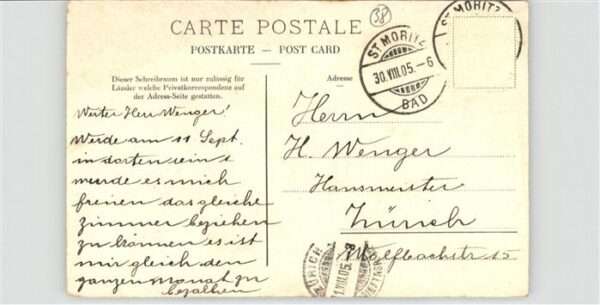 CARTE POSTALE
POSTKARTE — POST CARD
38
ST MORITZ
30.VIII.05.-6
BAD
ST MORITZ
Dieser Schreibraum ist nur zulässig für
Länder welche Privatkorrespondenz auf
der Adress-Seite gestatten.
Adresse
Werter Herr Wenger!
Werde am 11 Sept.
in dorten sein &
wurde es mich
freuen das gleiche
Zimmer beziehen
zu können es ist
mir gleich den
ganzen Monat zu
bezahlen
Herrn
H. Wenger
Hausmeister
Zürich
Wolfbachstr 15
ZÜRICH
1.VIII.05.